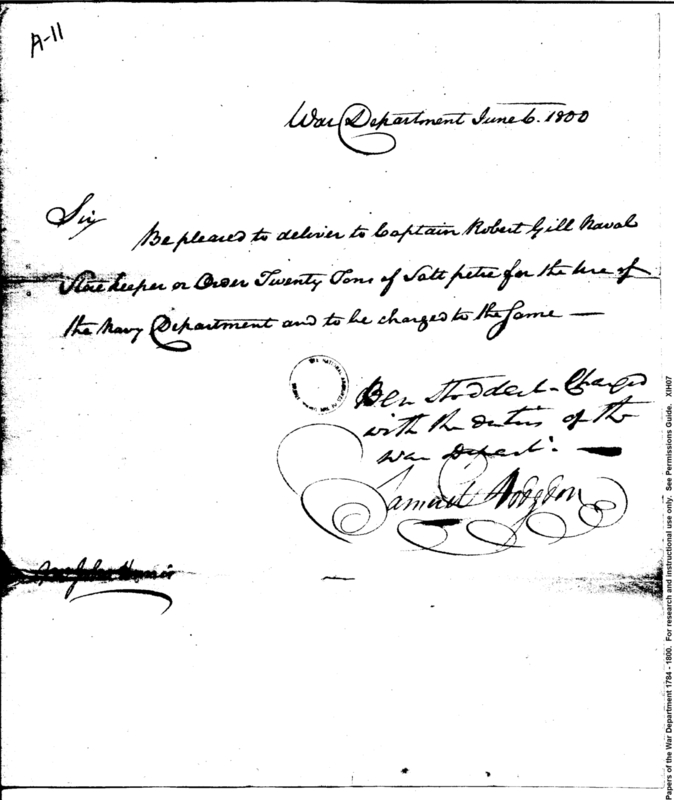 A-11
War Department June 6. 1800
Sir
Be pleased to deliver to Captain Robert Gill Naval
Store keeper or Order Twenty Tons of Salt petre for the Use of
the Navy Department and to be charged to the Same —
Ben Stoddert - Charged
with the duties of the
War Depart.
Samuel Hodgdon
John Harris
Papers of the War Department 1784 - 1800. For research and instructional use only. See Permissions Guide. XIH07